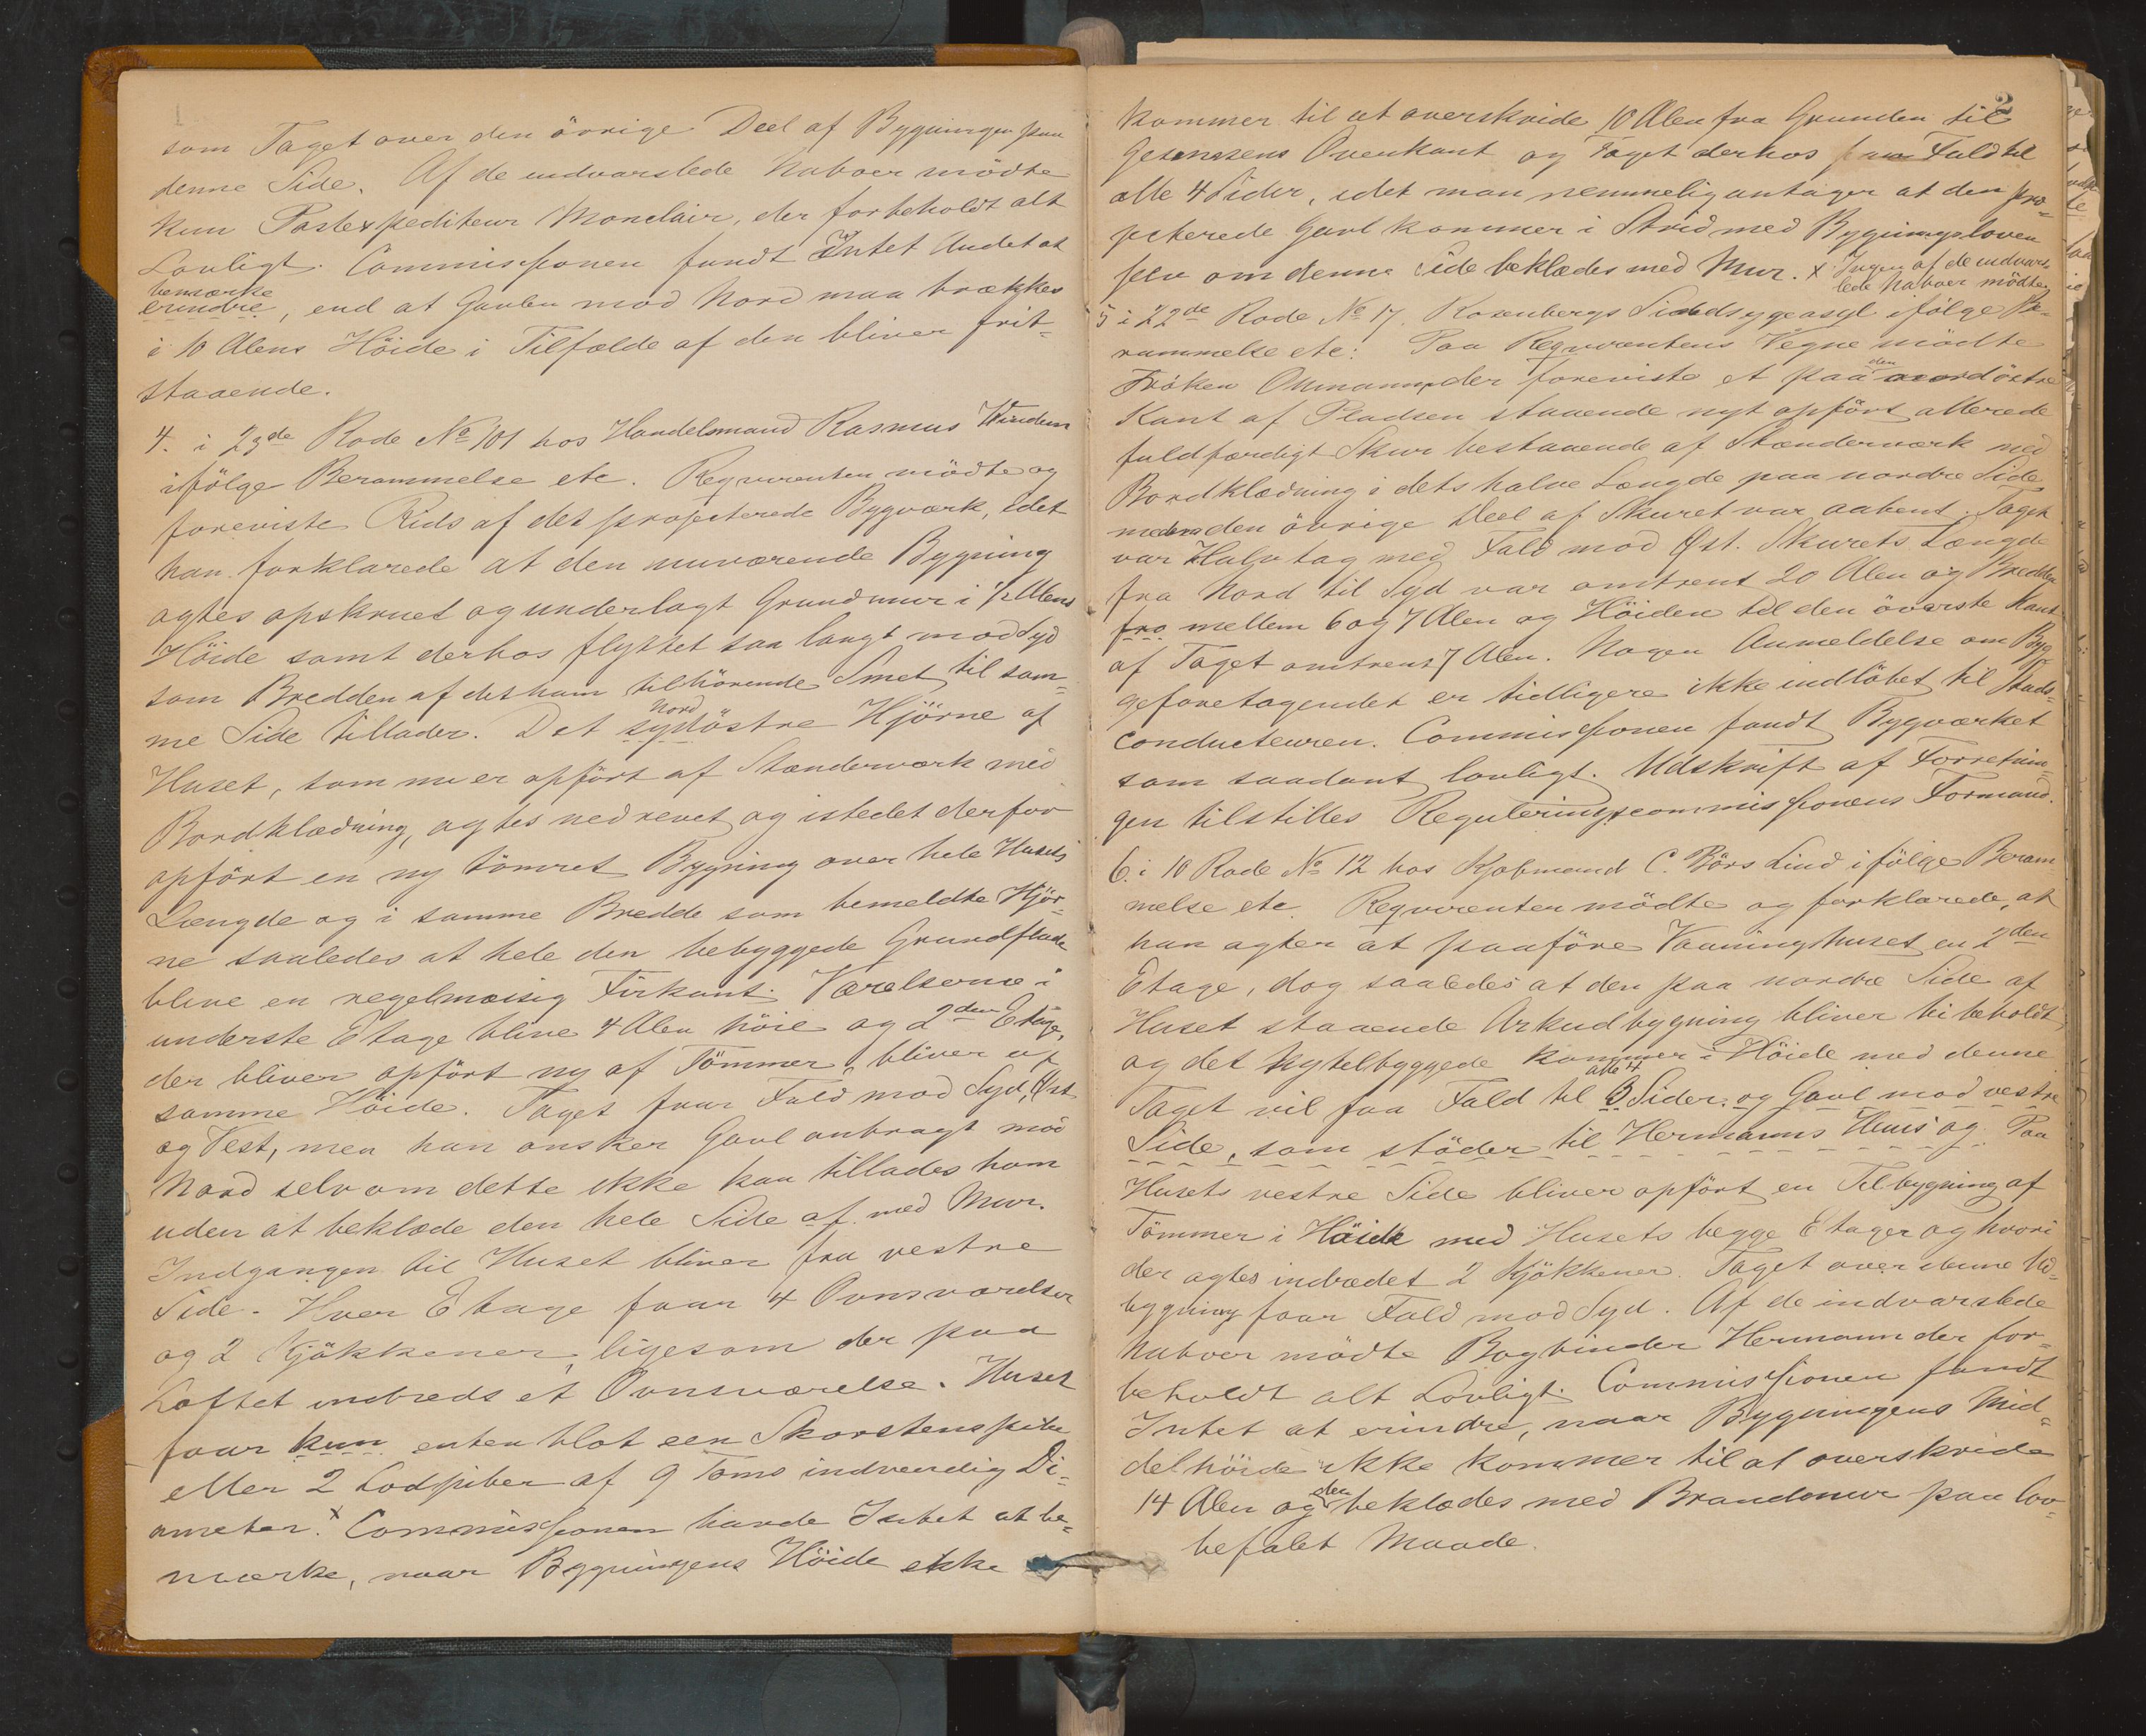 som Taget over den övrige Deel af Bygningen paa
denne Side. Af de indvarslede Naboer mödte
kun Postexpediteur Monclair, der forbeholdt alt
Lovligt. Commissionen fandt Intet Andet at
bemærke
erindre, end at Gavlen mod Nord maa brækkes
i 10 Alens Höide i Tilfælde af den bliver frit-
staaende.
4. i 23de Rode No 101 hos Handelsmand Rasmus Windum
ifölge Berammelse etc. Reqvirenten mödte og
foreviste Rids af det projecterede Bygværk, idet
han forklarede at den nuværende Bygning
agtes opskruet og underlagt Grundmur i 1/2 Alens
Höide samt derhos flyttet saa langt mod Syd
som Bredden af det ham tilhörende Smet til sam-
me Side tillader. Det sydöstre Hjörne af
Nord
Huset, som nu er opfört af Stænderværk med
Bordklædning, agtes nedrevet og istedet derfor
opfört en ny tömret Bygning over hele Husets
Længde og i samme Bredde som bemeldte Hjör-
ne saaledes at hele den bebyggede Grundflade
blive en regelmæssig Firkant. Værelserne i
underste Etage blive 4 Alen höie og 2den Etage,
der bliver opfört ny af Tömmer, bliver af
samme Höide. Taget faar Fald mod Syd, Öst
og Vest, men han önsker Gavl anbragt mod
Nord selv om dette ikke kan tillades ham
uden at beklæde den hele Side af med Mur.
Indgangen til Huset bliver fra vestre
Side. Hver Etage faar 4 Ovnsværelser
og 2 Kjökkener, ligesom der paa
Loftet indreds et Ovnsværelse. Huset
faar kun enten blot een Skorstenspibe
eller 2 Lodpiber af 9 Toms indvendig Di-
ameter. x Commissionen havde Intet at be-
mærke, naar Bygningens Höide ikke
2
kommer til at overskride 10 Alen fra Grunden til
Gesimsens Overkant og Taget derhos faar Fald til
alle 4 Sider, idet man nemmelig antager at den pro-
jecterede Gavl kommer i Strid med Bygningsloven
selv om denne Side beklædes med Mur. x Ingen af de indvars-
lede Naboer mödte.
5 i 22de Rode No 17. Rosenbergs Sindsygeasyl ifölge Be-
rammelse etc: Paa Reqvirentens Vegne mödte
Fröken Ohmann, der foreviste et paa den nordöstre
Kant af Pladsen staaende nyt opfört allerede
fuldfærdigt Skur bestaaende af Stænderværk med
Bordklædning i dets halve Længde paa nordre Side
medens den övrige Deel af Skuret var aabent. Taget
var Halvtag med Fald mod Öst. Skurets Længde
fra Nord til Syd var omtrent 20 Alen og Bredden
fra mellem 6 og 7 Alen og Höiden til den överste Kant
af Taget omtrent 7 Alen. Nogen Anmeldelse om Byg-
geforetagendet er tidligere ikke indlöbet til Stads-
conducteuren. Commissionen fandt Bygværket
som saadant lovligt. Udskrift af Forretnin-
gen tilstilles Reguleringscommissionens Formand.
6. i 10 Rode No 12 hos Kjöbmand C. Börs Lind ifölge Beram
melse etc. Reqvirenten mödte og forklarede, at
han agter at paaföre Vaaningshuset en 2den
Etage, dog saaledes at den paa nordre Side af
Huset staaende Arkudbygning bliver bibeholdt
og det nytilbyggede kommer i Höide med denne
alle 4
Taget vil faa Fald til 3 Sider. og Gavl mod vestre
Side, som stöder til Hermanns Huus og. Paa
Husets vestre Side bliver opfört en Tilbygning af
Tömmer i Höide med Husets begge Etager og hvori
der agtes indredet 2 Kjökkener. Taget over denne Ud-
bygning faar Fald mod Syd. Af de indvarslede
Naboer mödte Bogbinder Hermann der for-
beholdt alt Lovligt. Commissionen fandt
Intet at erindre, naar Bygningens Mid-
delhöide ikke kommer til at overskride
14 Alen og den beklædes med Brandmur paa lov-
befalet Maade.